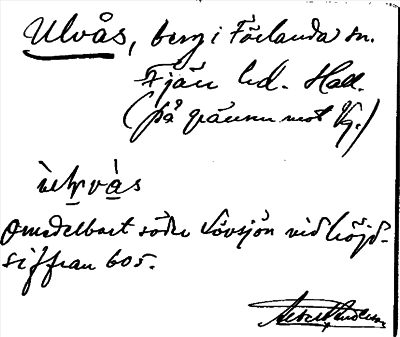 Ulvås, berg i Förlanda sn.
Fjäre hd. Hall.
(på gränsen mot Vg.)
Omedelbart söder Lövsjön vid höjd-
siffran 605.